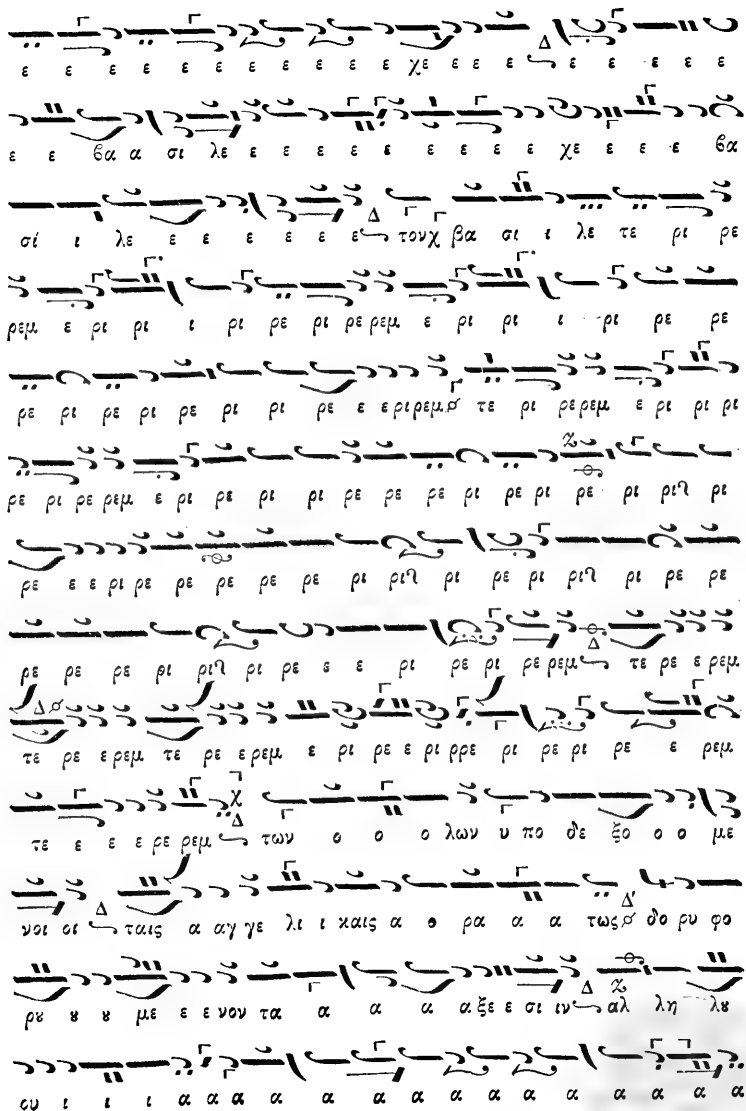 ε ε ε ε ε ε ε ε ε ε ε ε χε ε ε ε ε ε ε ε ε ε
ε ε βα α σι λε ε ε ε ε ε ε ε ε ε ε χε ε ε ε βα
σί ι λε ε ε ε ε ε ε τουχ βα σι ι λε τε ρι ρε
ρεμ ε ρι ρι ι ρι ρε ρι ρε ρεμ ε ρι ρι ι ρι ρε ρε
ρε ρι ρε ρι ρε ρι ρι ρε ε ε ρι ρεμ τε ρι ρε ρεμ ε ρι ρι ρι
ρε ρι ρε ρεμ ε ρι ρε ρι ρι ρε ρε ρε ρι ρε ρι ρε ρι ρι ρι
ρε ε ε ρι ρε ρε ρε ρε ρε ρι ρι ρι ρε ρι ρι ρι ρε ρε
ρε ρε ρε ρι ρι ρι ρε ε ε ρι ρε ρι ρε ρεμ τε ρε ε ρεμ
τε ρε ε ρεμ τε ρε ε ρεμ ε ρι ρε ε ρι ρρε ρι ρε ρι ρε ε ρεμ
τε ε ε ε ρε ρεμ των ο ο ο λων υ πο δε ξο ο ο με
νοι οι ταις α αγ γε λι ι καις α ο ρα α α τως δο ρυ φο
ρȣ ȣ ȣ με ε ε νον τα α α α α ξε ε σι ιν αλ λη λȣ
ου ι ι ι α α α α α α α α α α α α α α